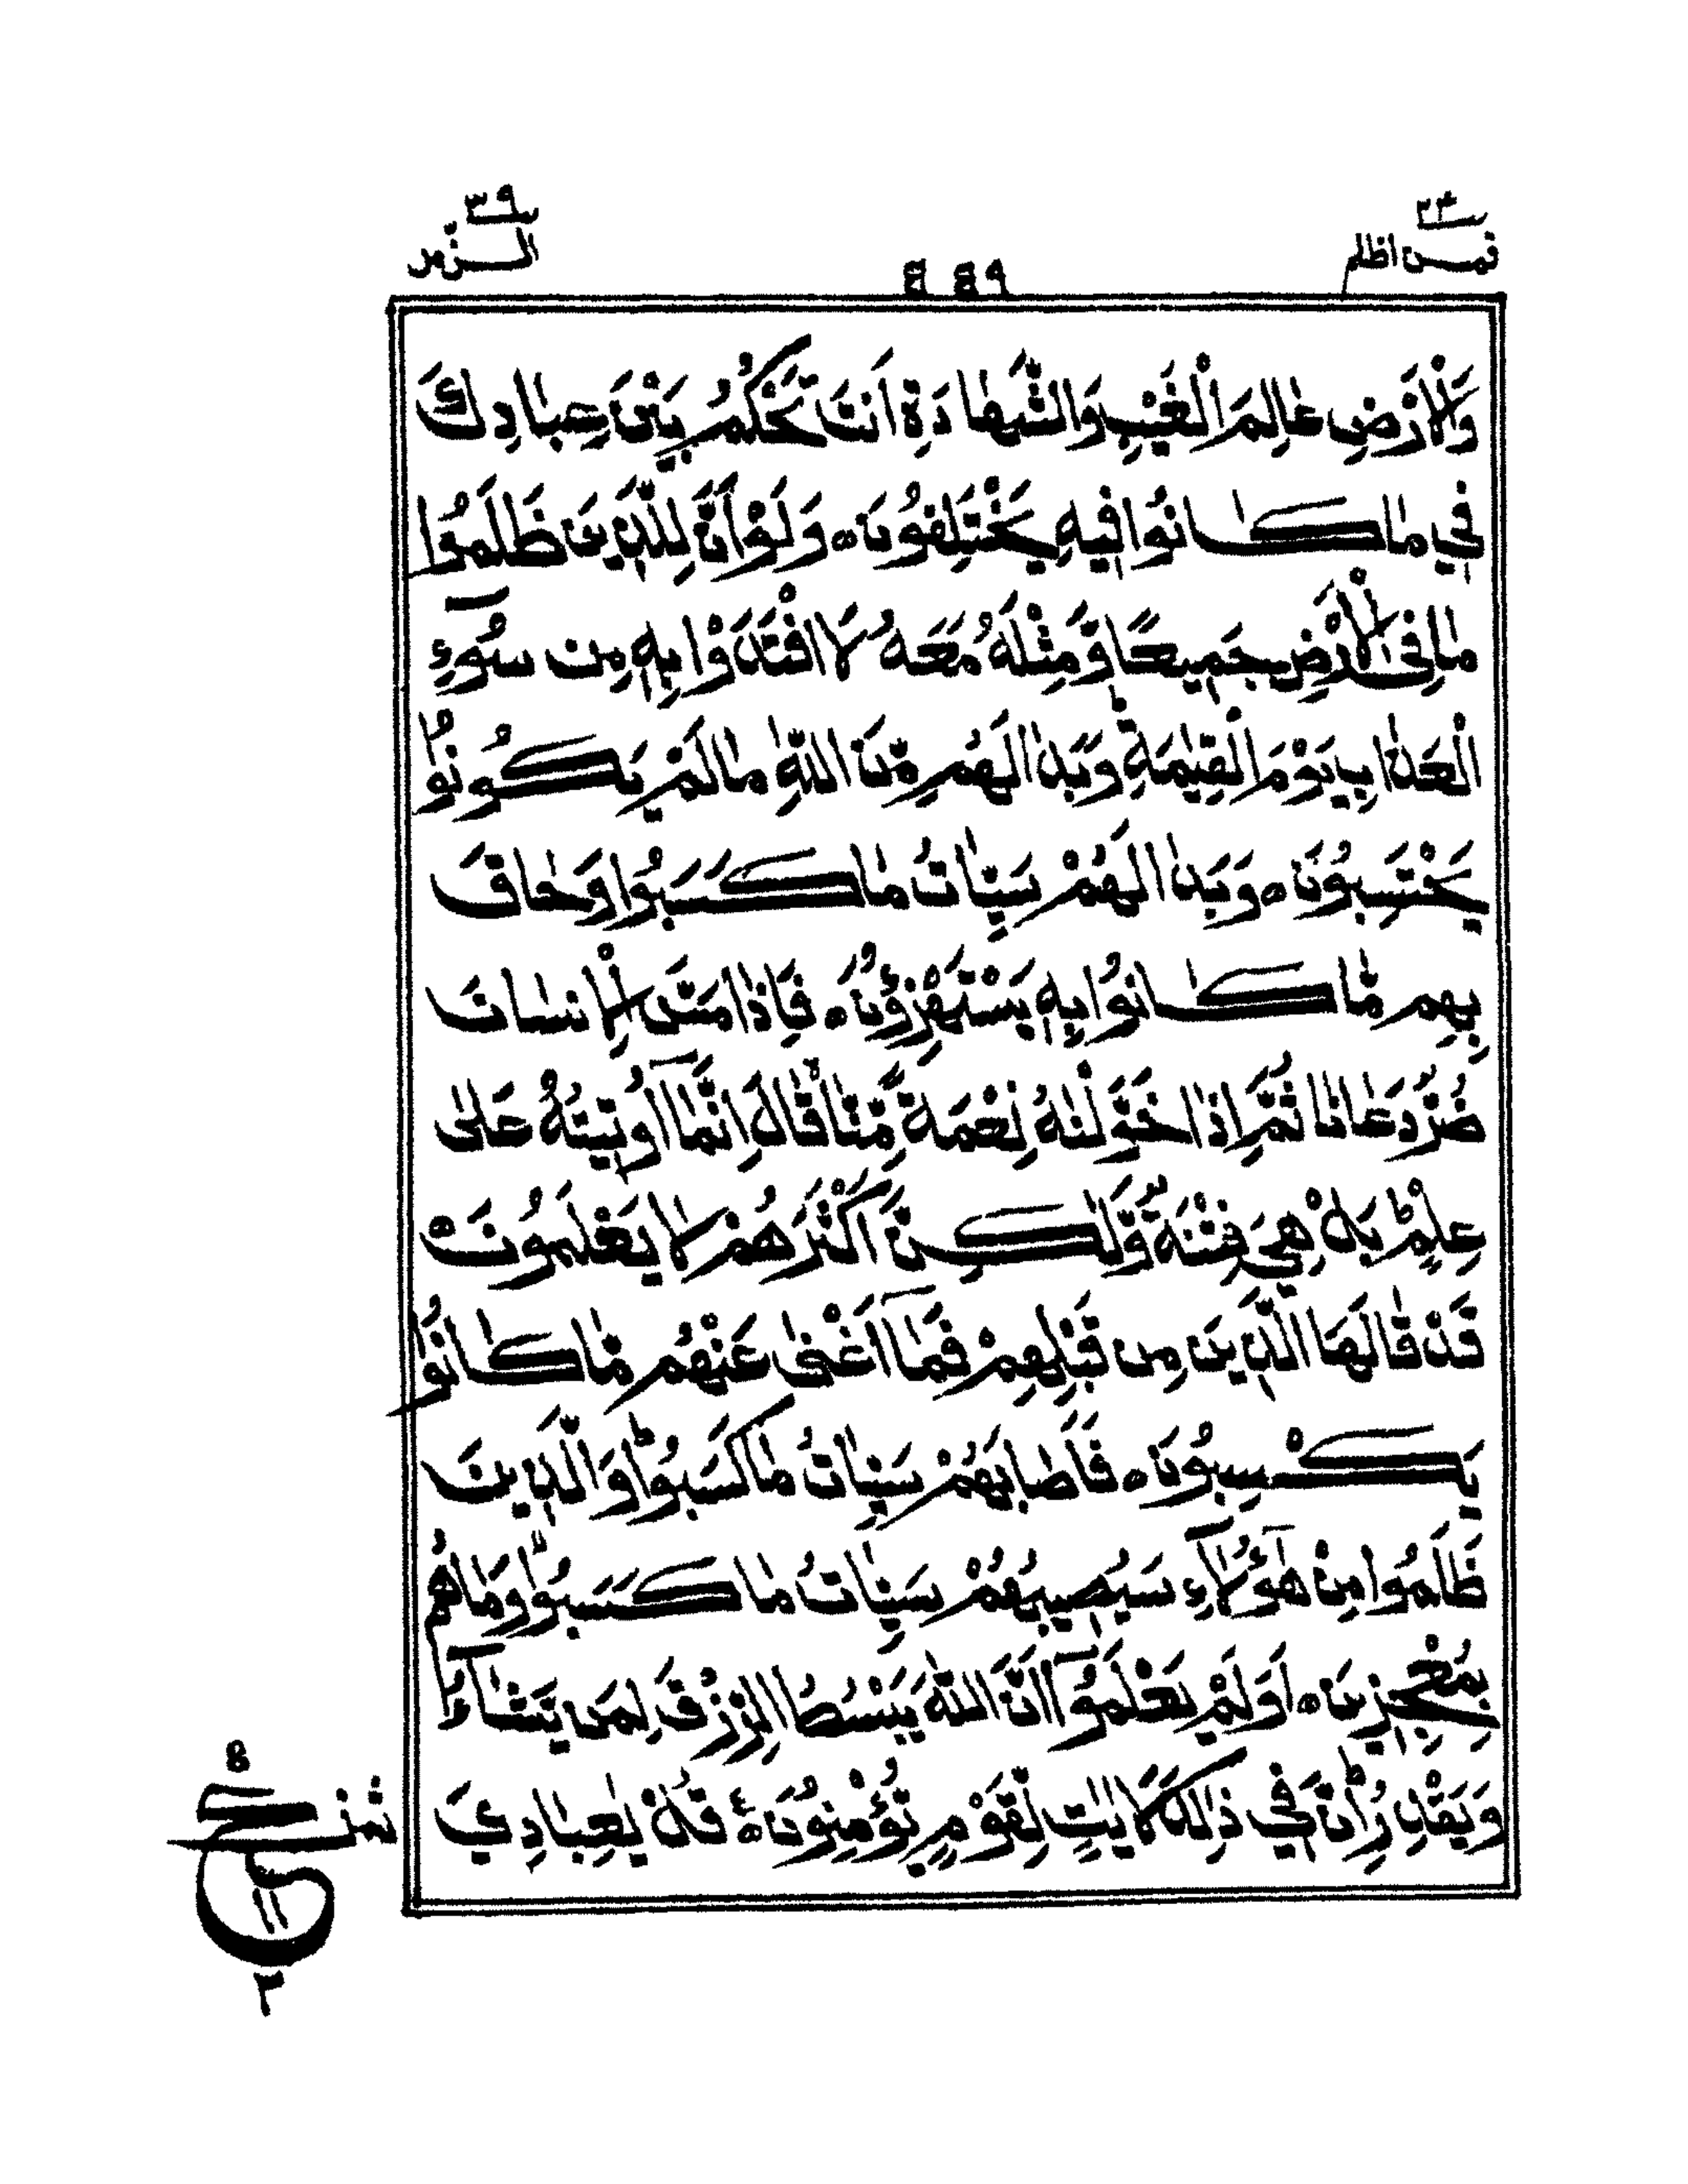 ٣٩
الزّمر
٤٤٩
٢٤
فمن اظلم
وَالْاَرْضِ عٰالِمَ الْغَيْبِ وَالشَّهَادَةِ اَنْتَ تَحْكُمُ بَيْنَ عِبٰادِكَ
فِي مٰا كٰانُوْا فِيْهِ يَخْتَلِفُوْنَ ه وَلَوْ اَنَّ لِلَّذِيْنَ ظَلَمُوْا
مٰا فِي الْاَرْضِ جَمِيْعًا وَّمِثْلَهٗ مَعَهٗ لَافْتَدَوْا بِهٖ مِنْ سُوْٓءِ
الْعَذٰابِ يَوْمَ الْقِيٰمَةِ ؕ وَبَدٰا لَهُمْ مِّنَ اللّٰهِ مٰا لَمْ يَكُوْنُوْا
يَحْتَسِبُوْنَ ه وَبَدٰا لَهُمْ سَيِّاٰتُ مٰا كَسَبُوْا وَحٰاقَ
بِهِمْ مّٰا كٰانُوْا بِهٖ يَسْتَهْزِؤُنَ ه فَاِذٰا مَسَّ الْاِنْسٰانَ
ضُرٌّ دَعٰانٰا ثُمَّ اِذٰا خَوَّلْنٰهُ نِعْمَةً مِّنّٰا قٰالَ اِنَّمٰٓا اُوْتِيْتُهٗ عَلٰى
عِلْمٍ ؕ بَلْ هِيَ فِتْنَةٌ وَّلٰكِنَّ اَكْثَرَهُمْ لٰا يَعْلَمُوْنَ ه
قَدْ قٰالَهَا الَّذِيْنَ مِنْ قَبْلِهِمْ فَمٰٓا اَغْنٰى عَنْهُمْ مّٰا كٰانُوْا
يَكْسِبُوْنَ ه فَاَصٰابَهُمْ سَيِّاٰتُ مٰا كَسَبُوْا ؕ وَالَّذِيْنَ
ظَلَمُوْا مِنْ هٰٓؤُلَآءِ سَيُصِيْبُهُمْ سَيِّاٰتُ مٰا كَسَبُوْا ۙ وَمٰا هُمْ
بِمُعْجِزِيْنَ ه اَوَلَمْ يَعْلَمُوْٓا اَنَّ اللّٰهَ يَبْسُطُ الرِّزْقَ لِمَنْ يَّشٰآءُ
وَيَقْدِرُ ؕ اِنَّ فِي ذٰلِكَ لَاٰيٰتٍ لِّقَوْمٍ يُّؤْمِنُوْنَ ه ع قُلْ يٰعِبٰادِيَ
ع
١١
٣